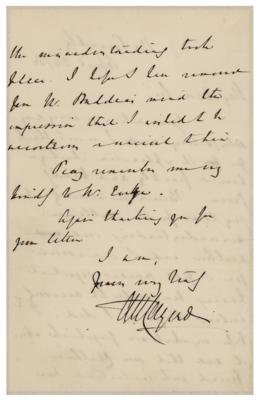 the misunderstanding took
place. I hope I have removed
from Mr. Buddens mind the
impression that I wished to be
uncourteous towards him.
Pray remember me very
kindly to Mr.
Again thanking you for
your letter
I am,
Yours very truly